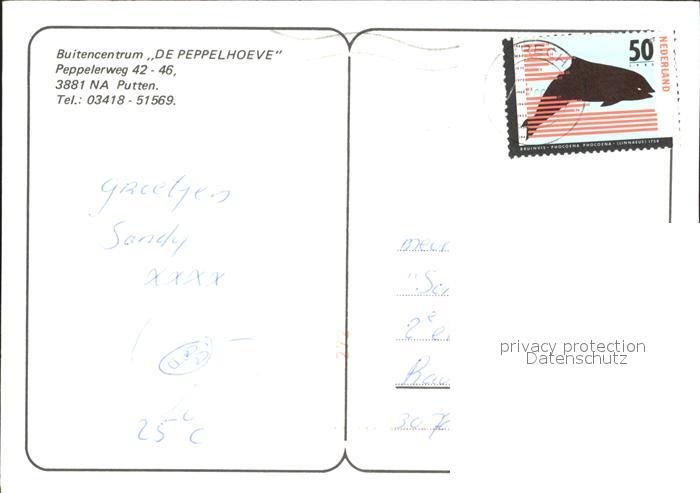 Buitencentrum „DE PEPPELHOEVE"
Peppelerweg 42 - 46,
3881 NA Putten.
Tel.: 03418 - 51569.
50
NEDERLAND
BRUINVIS - PHOCOENA PHOCOENA - (LINNAEUS) 1758
groetjes
Sandy
xxxx
25°C
"Sc
2e
30
privacy protection
Datenschutz